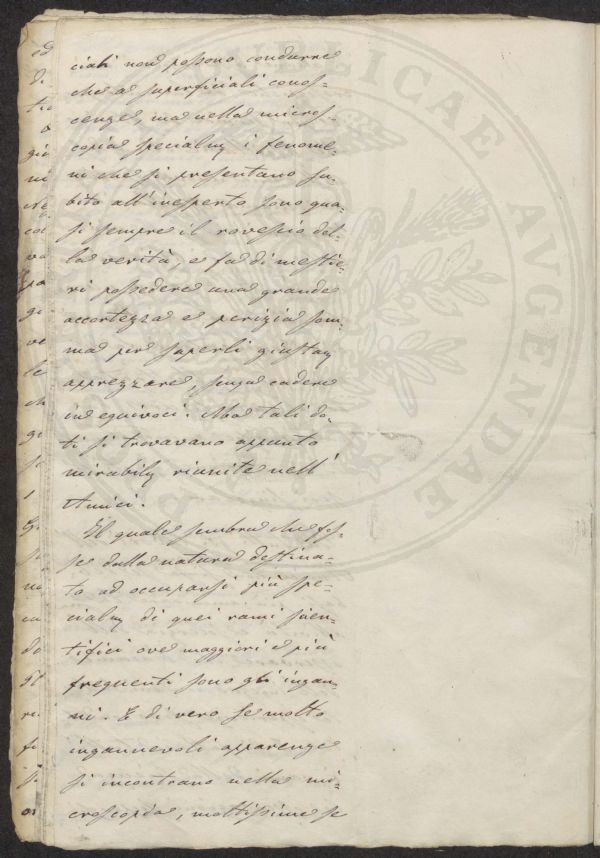 ciali non possono condurre
che a superficiali conos-
cenze, ma nella micros-
copia specialm i fenome-
ni che si presentano su-
bito all'inesperto sono qua-
si sempre il rovescio del-
la verità, e fa di mestie-
ri possedere una grande
accortezza e perizia som-
ma per saperli giustam
apprezzare, senza cadere
in equivoci. Ma tali do-
ti si trovavano appunto
mirabilm riunite nell'
Amici.
Il quale sembra che fos-
se dalla natura destina-
to ad occuparsi più spe-
cialm di quei rami scien-
tifici ove maggiori e più
frequenti sono gli ingan-
ni. E di vero se molte
ingannevoli apparenze
si incontrano nella mi-
croscopia, moltissime se
PUBLICAE AVGENDAE